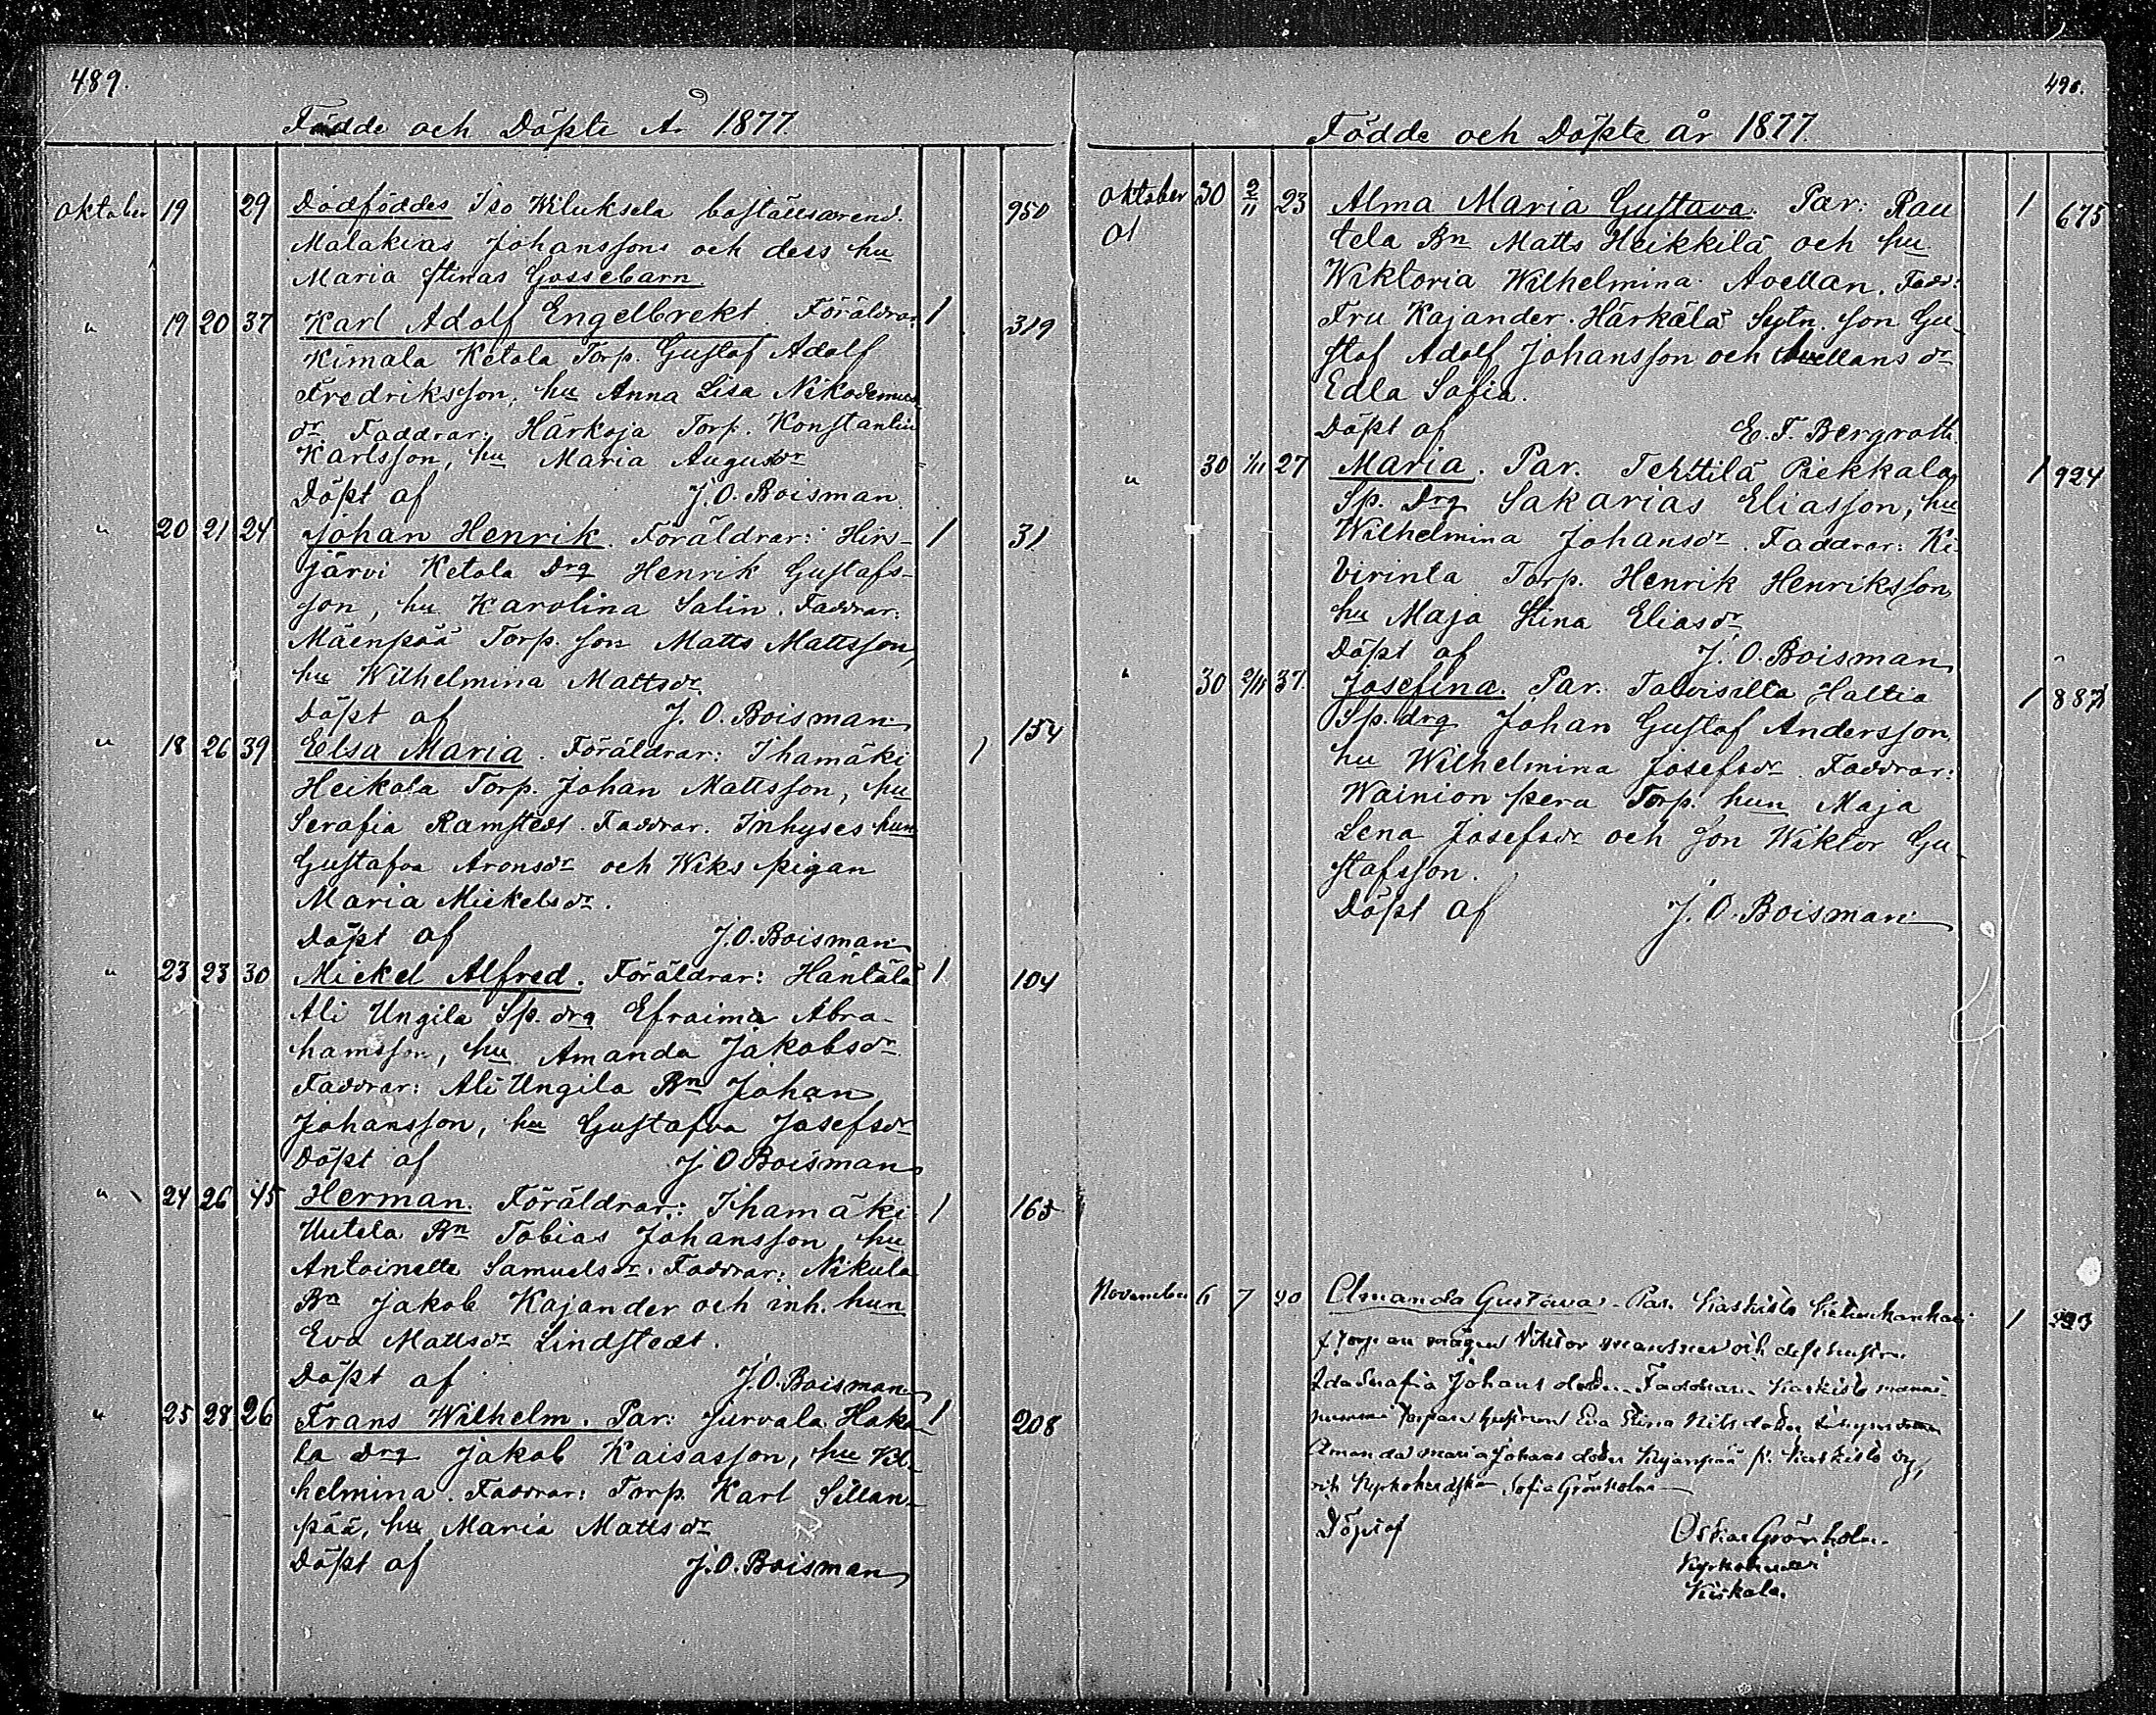 489.
Födde och Döpte År 1877.
Oktober 19 29 Dödföddes Iso Wiluksela boställsarend. 950
Malakias Johanssons och dess hu
Maria Stinas Gossebarn.
" 19 20 37 Karl Adolf Engelbrekt. Föräldrar: 1 319
Kimala Ketola Torp. Gustaf Adolf
Fredriksson, hu Anna Lisa Nikodemus
dr Faddrar: Härkoja Torp. Konstantin
Karlsson, hu Maria Augusdr
Döpt af J. O. Boisman
" 20 21 24 Johan Henrik. Föräldrar: Hir- 1 31
järvi Ketola Drg Henrik Gustafs-
son, hu Karolina Salin. Faddrar:
Mäenpää Torp. son Matts Mattsson,
hu Wilhelmina Mattsdr
Döpt af J. O. Boisman
" 18 26 39 Elsa Maria. Föräldrar: Ihamäki 1 154
Heikola Torp. Johan Mattsson, hu
Serafia Ramstedt. Faddrar. Inhyses hun
Gustafva Aronsdr och Wiks pigan
Maria Mickelsdr.
Döpt af J. O. Boisman
" 23 23 30 Mickel Alfred. Föräldrar: Häntälä 1 104
Ali Ungila Sp. drg Efraim Abra-
hamsson, hu Amanda Jakobsdr
Faddrar: Ali Ungila Bn Johan
Johansson, hu Gustafva Josefsdr
Döpt af J O Boisman
" 24 26 45 Herman. Föräldrar: Ihamäki 1 163
Uutela Bn Tobias Johansson hu
Antoinette Samuelsdr. Faddrar: Nikula
Bn Jakob Kajander och inh. hun
Eva Mattsdr Lindstedt.
Döpt af J. O. Boisman
" 25 28 26 Frans Wilhelm. Par: Jurvala Haka 1 208
la drg Jakob Kaisasson, hu Wil-
helmina. Faddrar: Torp. Karl Sillan-
pää, hu Maria Mattsdr
Döpt af J. O. Boisman
490.
Födde och Döpte år 1877.
Oktober 30 2/11 23 Alma Maria Gustava. Par: Rau 1 675
tela Bn Matts Heikkilä och hu
Wiktoria Wilhelmina Avellan. Fadd:
Fru Kajander. Härkälä Sytn. son Gu-
staf Adolf Johansson och Avellans dr
Edla Sofia.
Döpt af E. F. Bergroth
" 30 1/11 27 Maria. Par. Terttilä Piekkala 1 924
Sp. Drg Sakarias Eliasson, hu
Wilhelmina Johansdr. Faddrar: Ki-
virinta Torp. Henrik Henriksson
hu Maja Stina Eliasdr
Döpt af J. O. Boisman
" 30 2/11 37. Josefina. Par. Talvisilta Haltia 1 887
Sp. drg Johan Gustaf Andersson,
hu Wilhelmina Josefsdr. Faddrar:
Wainion pera Torp. hun Maja
Lena Josefsdr och son Wiktor Gu-
stafsson.
Döpt af J. O. Boisman
November 6 7 20 Amanda Gustava. Par. Kaskisto 1
torpare mågen Viktor och dess hustru
Ida Serafia Johans doter. Faddrar. Kaskisto
torpare hustrun Eva Stina Nils doter
Amanda Maria Johans doter Kaskisto
och Kyrkoherdskan Sofia Grönholm
Döpt af Oskar Grönholm.
Kyrkoherde i
Kiskala.